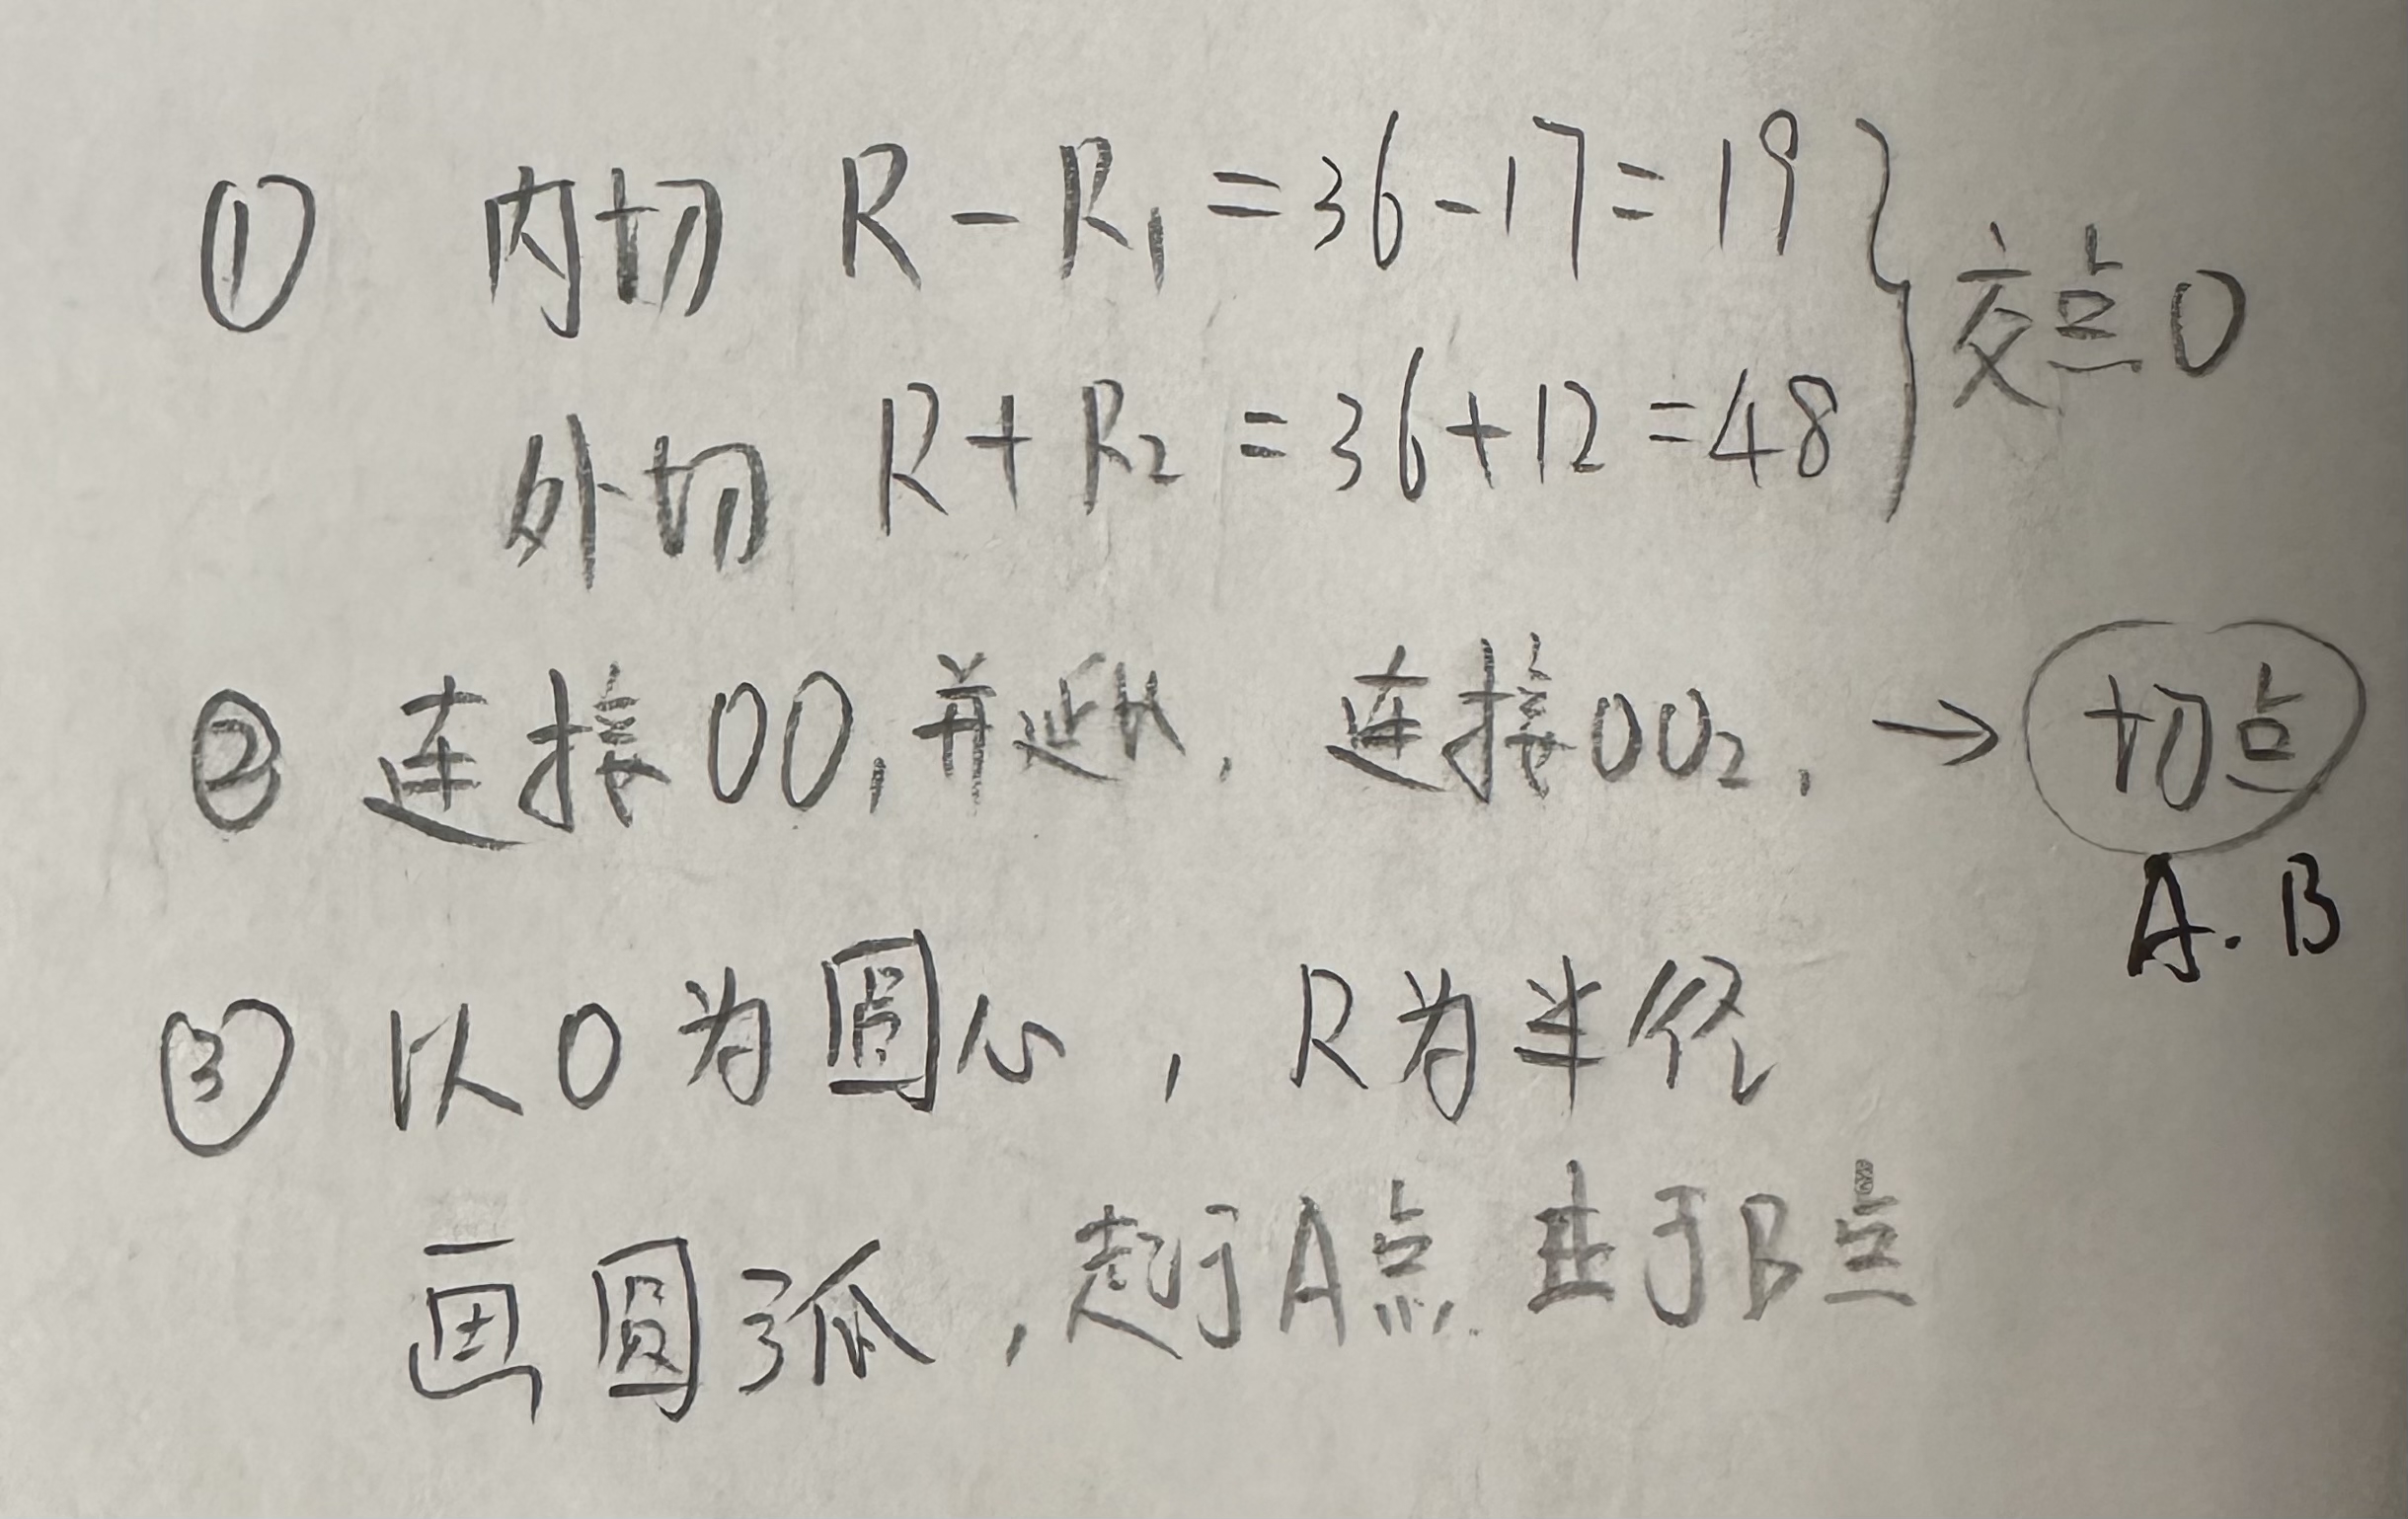 ① 内切 R-R₁=36-17=19
外切 R+R₂=36+12=48 } 交点O
② 连接OO₁并延长, 连接OO₂, → 切点
A.B
③ 以O为圆心, R为半径
画圆弧, 起于A点 止于B点